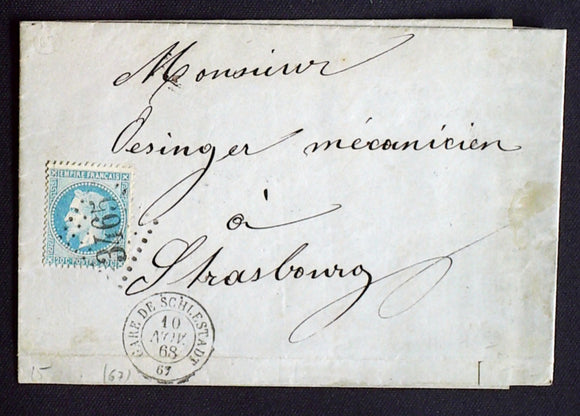 Monsieur
Oesinger mécanicien
à
Strasbourg
EMPIRE FRANÇAIS
3165
GARE DE SCHLESTADT
10
68
67
15
(67)